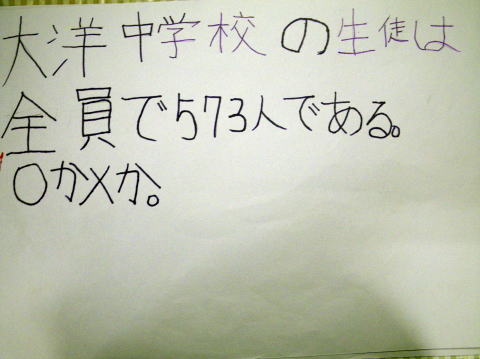 大洋中学校の生徒は
全員で573人である。
○か×か。